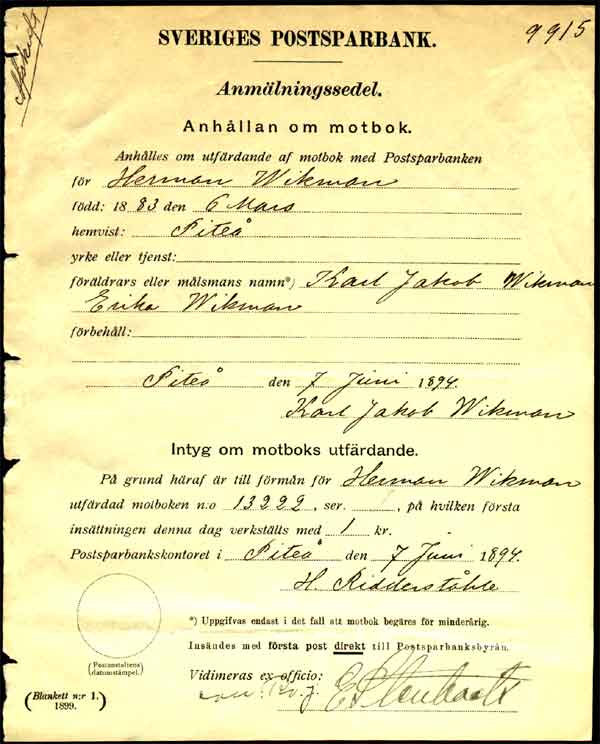 Afskrift
9915
SVERIGES POSTSPARBANK.
Anmälningssedel.
Anhållan om motbok.
Anhålles om utfärdande af motbok med Postsparbanken
för Herman Wikman
född: 1883 den 6 Mars
hemvist: Piteå
yrke eller tjenst:
föräldrars eller målsmans namn*) Karl Jakob Wikman
Erika Wikman
förbehåll:
Piteå den 7 Juni 1894.
Karl Jakob Wikman
Intyg om motboks utfärdande.
På grund häraf är till förmån för Herman Wikman
utfärdad motboken n:o 13222, ser. , på hvilken första
insättningen denna dag verkställts med 1 kr.
Postsparbankskontoret i Piteå den 7 Juni 1894.
H. Ridderstähle
*) Uppgifvas endast i det fall att motbok begäres för minderårig.
Insändes med första post direkt till Postsparbanksbyrån.
(Postanstaltens datumstämpel.)
Vidimeras ex officio:
(Blankett n:r 1. 1899.)